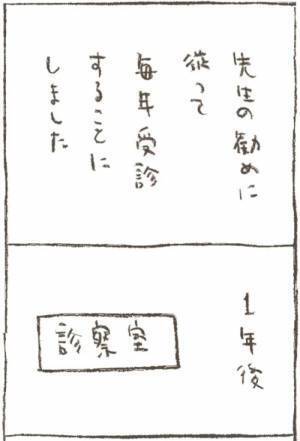 先生の勧めに
従って
毎年受診
することに
しました
1年後
診察室